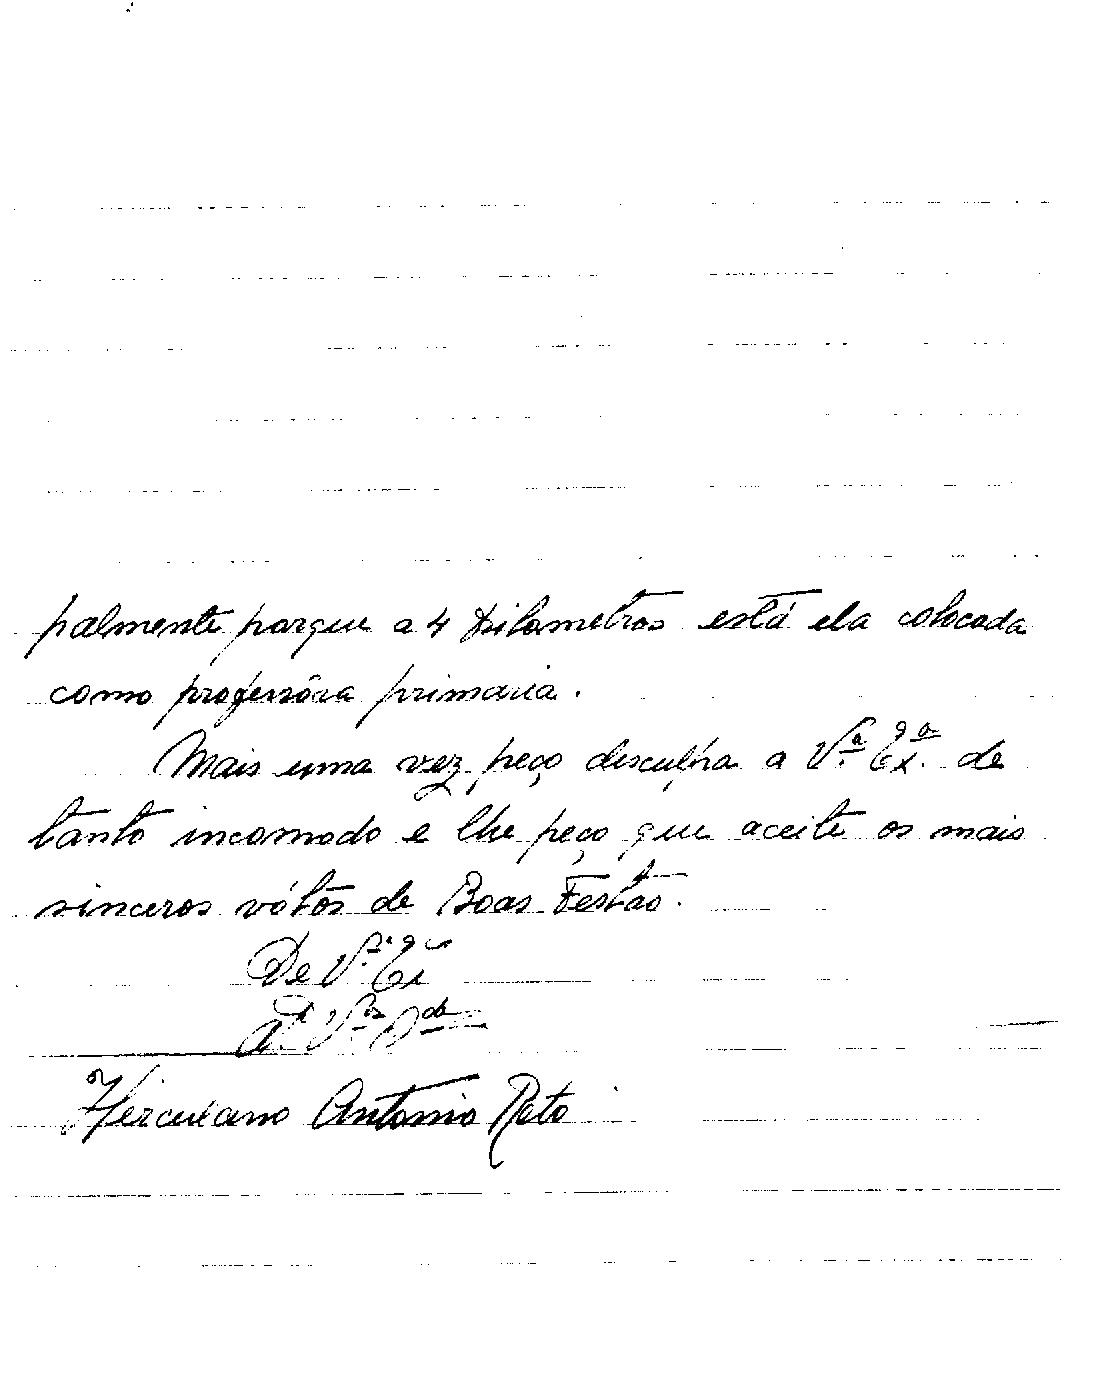 palmente porque a 4 kilometros está ela colocada
como professôra primaria.
Mais uma vez peço desculpa a V.ª Ex.ª de
tanto incomodo e lhe peço que aceite os mais
sinceros vótos de Boas Festas.
De V.ª Ex.ª
At.
Herculano Antonio